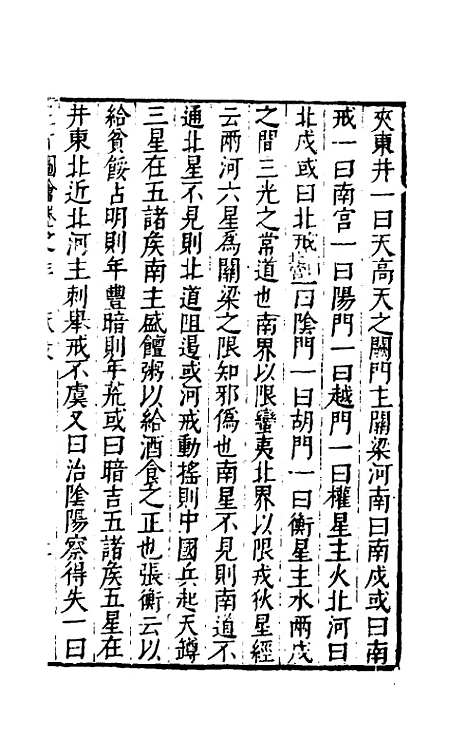 夾東井一曰天高天之闕門主關梁河南曰南戍或曰南
戒一曰南宫一曰陽門一曰越門一曰權星主火北河曰
北戍或曰北戒一曰陰門一曰胡門一曰衡星主水兩戍
之間三光之常道也南界以限蠻夷北界以限戎狄星經
云兩河六星為關梁之限知邪偽也南星不見則南道不
通北星不見則北道阻遏或河戒動揺則中國兵起天罇
三星在五諸矦南主盛饘粥以給酒食之正也張衡云以
給貧餒占明則年豐暗則年荒或曰暗吉五諸矦五星在
井東北近北河主刺舉戒不虞又曰治隂陽察得失一曰
三才圖會卷之 天文